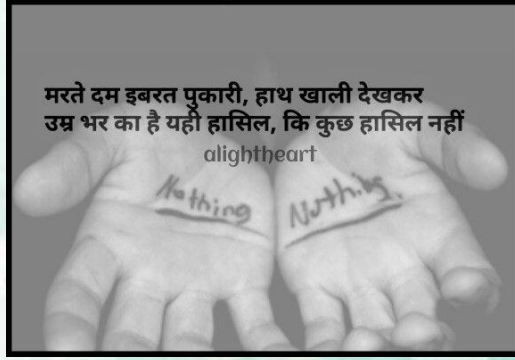 मरते दम इबरत पुकारी, हाथ खाली देखकर
उम्र भर का है यही हासिल, कि कुछ हासिल नहीं
alightheart
Nothing Nothing.